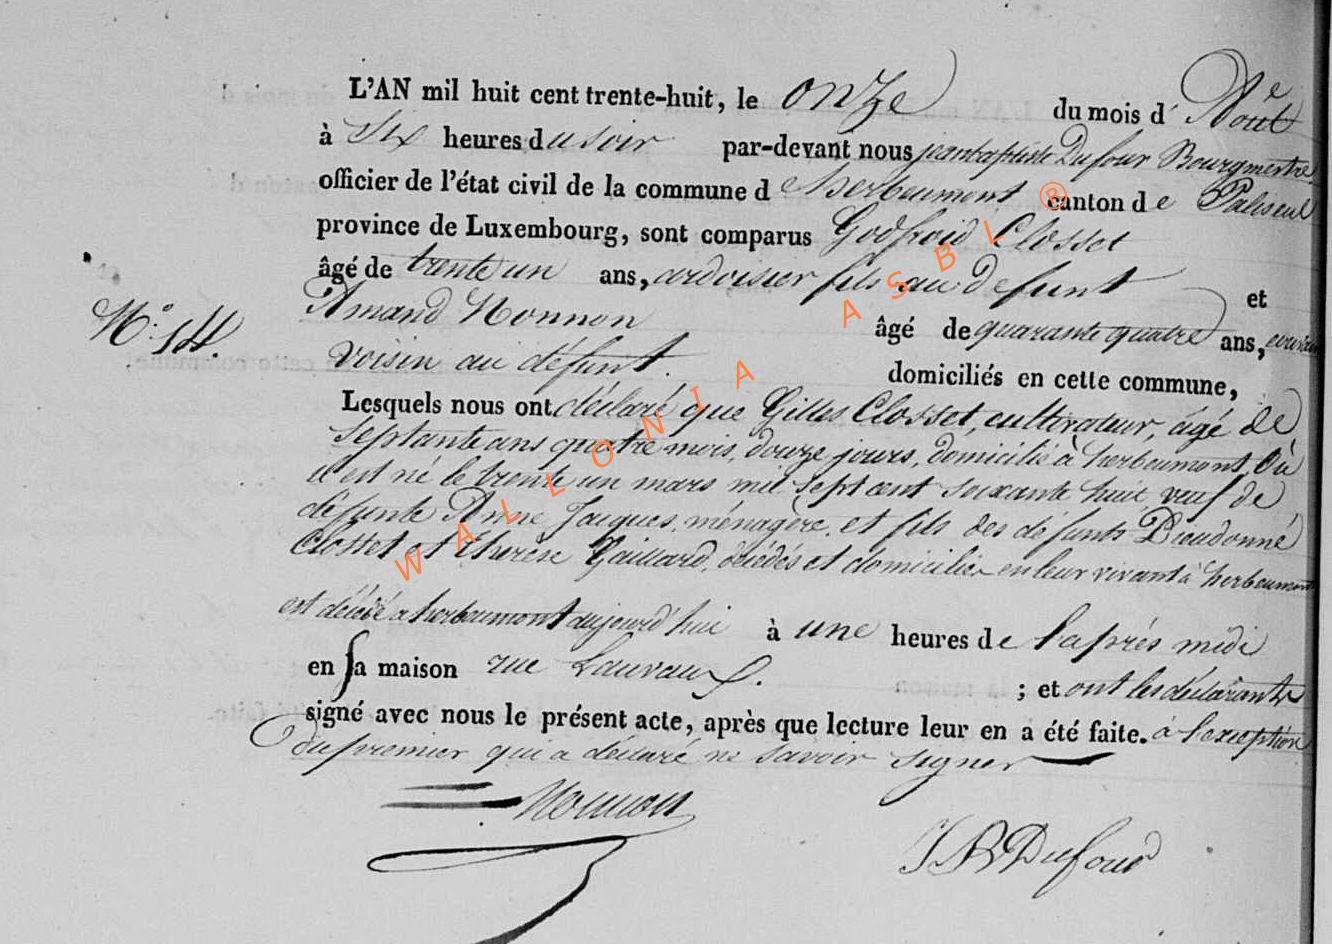 L'AN mil huit cent trente-huit, le onze du mois d' Aout
à six heures du soir par-devant nous jeanbaptiste Dufour Bourgmestre
officier de l'état civil de la commune d'herbeumont canton de Paliseul
province de Luxembourg, sont comparus Godfroid Closset
âgé de trente un ans, ardoisier fils au defunt et
N.° 14. Amand Nonnon âgé de quarante quatre ans,
voisin au défunt. domiciliés en cette commune,
Lesquels nous ont déclaré que Gilles Closset, cultivateur, âgé de
septante ans quatre mois, douze jours, domicilié à herbeumont, où
il est né le trente un mars mil sept cent soixante huit, veuf de
défunte Anne Jacques, ménagère, et fils des défunts Dieudonné
Closset et thérèse Gaillard, décédés et domiciliés en leur vivant à herbeumont
est décédé a herbeumont aujourd'hui à une heures de l'après midi
en sa maison rue Lauvaux. ; et ont les déclarants
signé avec nous le présent acte, après que lecture leur en a été faite. à l'exception
du premier qui a déclaré ne savoir signer
Nonnon
JB Dufour
WALLONIA ASBL ®